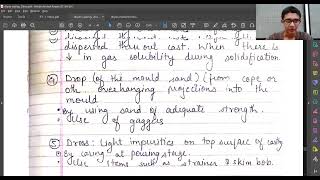 dispersed throout cast. When there is
↓ in gas solubility during solidification.
④ Drop (of the mould sand) (from cope or
oth. overhanging projections into the
mould
• By using sand of adequate strength.
• Use of gaggers
⑤ Dross: Light impurities on top surface of casting
• By caring at pouring stage.
• Use items such as strainer & skim bob.